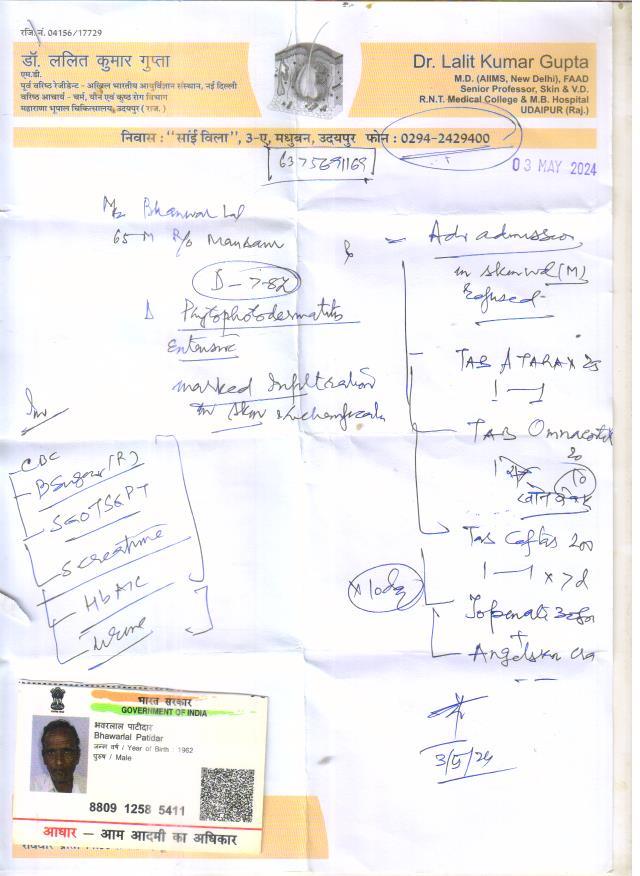 रजि. नं. 04156/17729
डॉ. ललित कुमार गुप्ता
एम.डी.
पूर्व वरिष्ठ रेजीडेन्ट - अखिल भारतीय आयुर्विज्ञान संस्थान, नई दिल्ली
वरिष्ठ आचार्य - चर्म, यौन एवं कुष्ठ रोग विभाग
महाराणा भूपाल चिकित्सालय, उदयपुर (राज.)
Dr. Lalit Kumar Gupta
M.D. (AIIMS, New Delhi), FAAD
Senior Professor, Skin & V.D.
R.N.T. Medical College & M.B. Hospital
UDAIPUR (Raj.)
निवास : "साई विला", 3-ए, मधुबन, उदयपुर फोन : 0294-2429400
6375691169
03 MAY 2024
Bhanwar Lal
65 M R/o
D Phytophotodermatitis
Extensive
marked Infiltration
in skin
Inv
CBC
B Sugar (R)
SGOT SGPT
S creatinine
HbA1C
Urine
Adv admission
in skin wd (M)
Refused
TAB ATARAX 25
1 — 1
TAB Omnacortil
20
10
Tab 200
1 — 1 x 7d
x 10 days
+
3/5/24
भारत सरकार
GOVERNMENT OF INDIA
भवरलाल पाटीदार
Bhawarlal Patidar
जन्म वर्ष / Year of Birth : 1962
पुरुष / Male
8809 1258 5411
आधार — आम आदमी का अधिकार